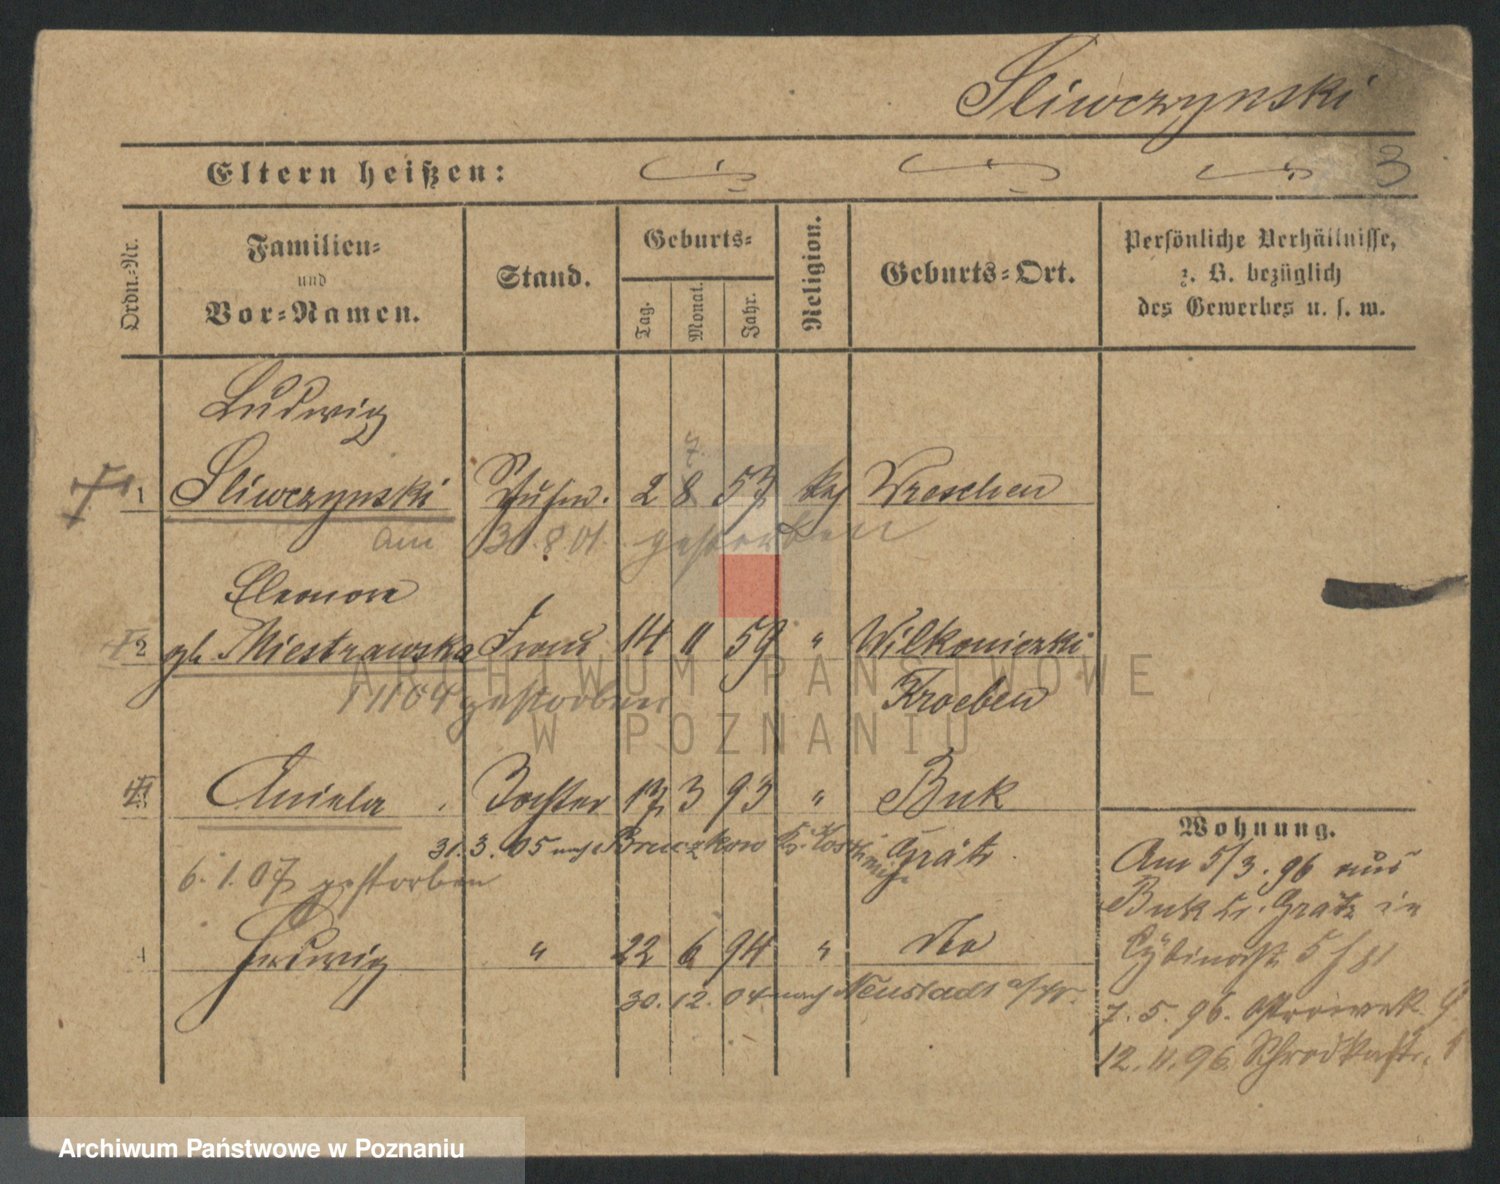 Sliwczynski
3
Eltern heißen:
Ordn.-Nr.
Familien-
und
Vor-Namen.
Stand.
Geburts-
Tag.
Monat.
Jahr.
Religion.
Geburts-Ort.
Persönliche Verhältnisse,
z. B. bezüglich
des Gewerbes u. s. w.
Ludwig
1 Sliwczynski 2 8 53 kat Wreschen
am 31. 8 01. gestorben
Eleonore
2 gb. Miestrawska Frau 14 11 59 " Wilkoniczki
1 1104 gestorben Kroeben
3 Aniela Tochter 17 3 93 " Buk
31. 3. 05 nach Bruczkow Kr. Grätz
6. 1. 07 gestorben
4 Ludwig " 22 6 94 " dto
30. 12. 04 nach Neustadt
Wohnung.
Am 5/3. 96 aus
Buk Kr. Grätz in
7. 5. 96. Ostrowek
12. 11. 96. Schrodkastr.
ARCHIWUM PAŃSTWOWE
W POZNANIU
Archiwum Państwowe w Poznaniu